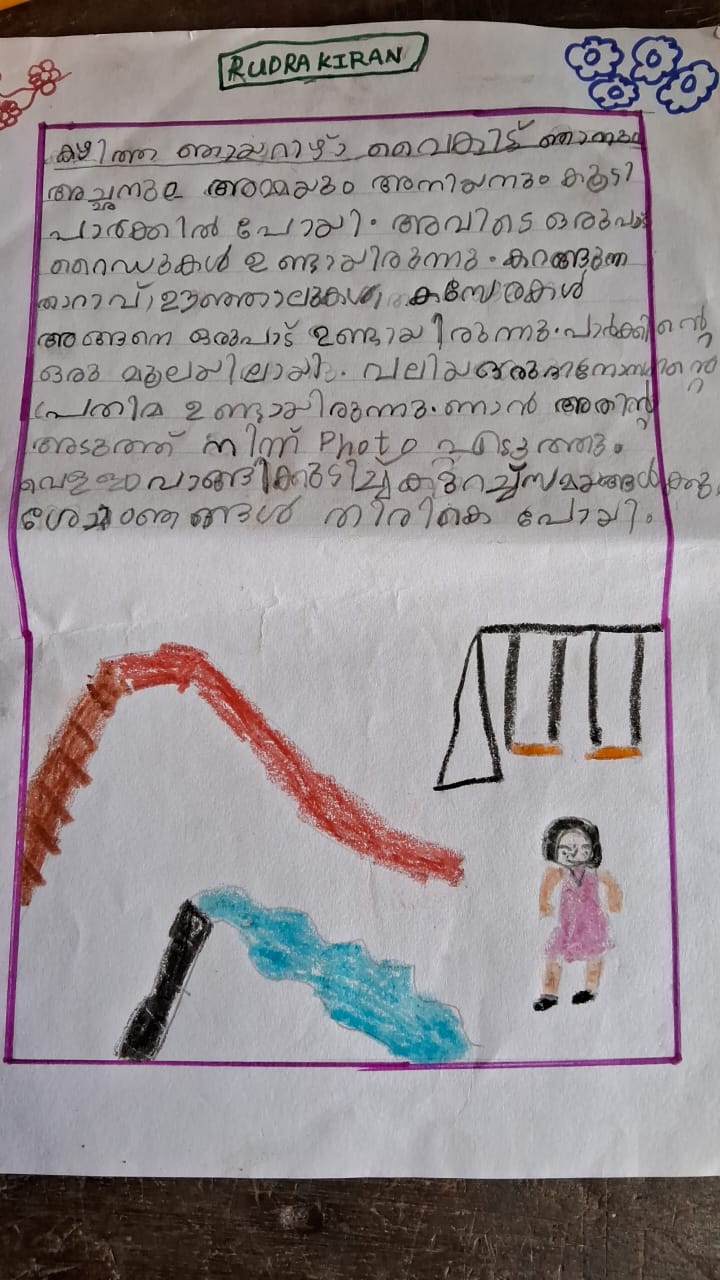 RUDRA KIRAN
കഴിഞ്ഞ ഞായറാഴ്ച വൈകിട്ട് ഞാനും
അച്ഛനും അമ്മയും അനിയനും കൂടി
പാർക്കിൽ പോയി. അവിടെ ഒരുപാട്
റൈഡുകൾ ഉണ്ടായിരുന്നു. കറങ്ങുന്ന
താറാവ്, ഊഞ്ഞാലുകൾ, കസേരകൾ
അങ്ങനെ ഒരുപാട് ഉണ്ടായിരുന്നു. പാർക്കിന്റെ
ഒരു മൂലയിലായി. വലിയ ഒരു
പ്രതിമ ഉണ്ടായിരുന്നു. ഞാൻ അതിന്റെ
അടുത്ത് നിന്ന് Photo എടുത്തു.
വെള്ളം വാങ്ങി കുടിച്ച് കുറച്ച് സമയങ്ങൾക്കു
ശേഷം ഞങ്ങൾ തിരികെ പോയി.